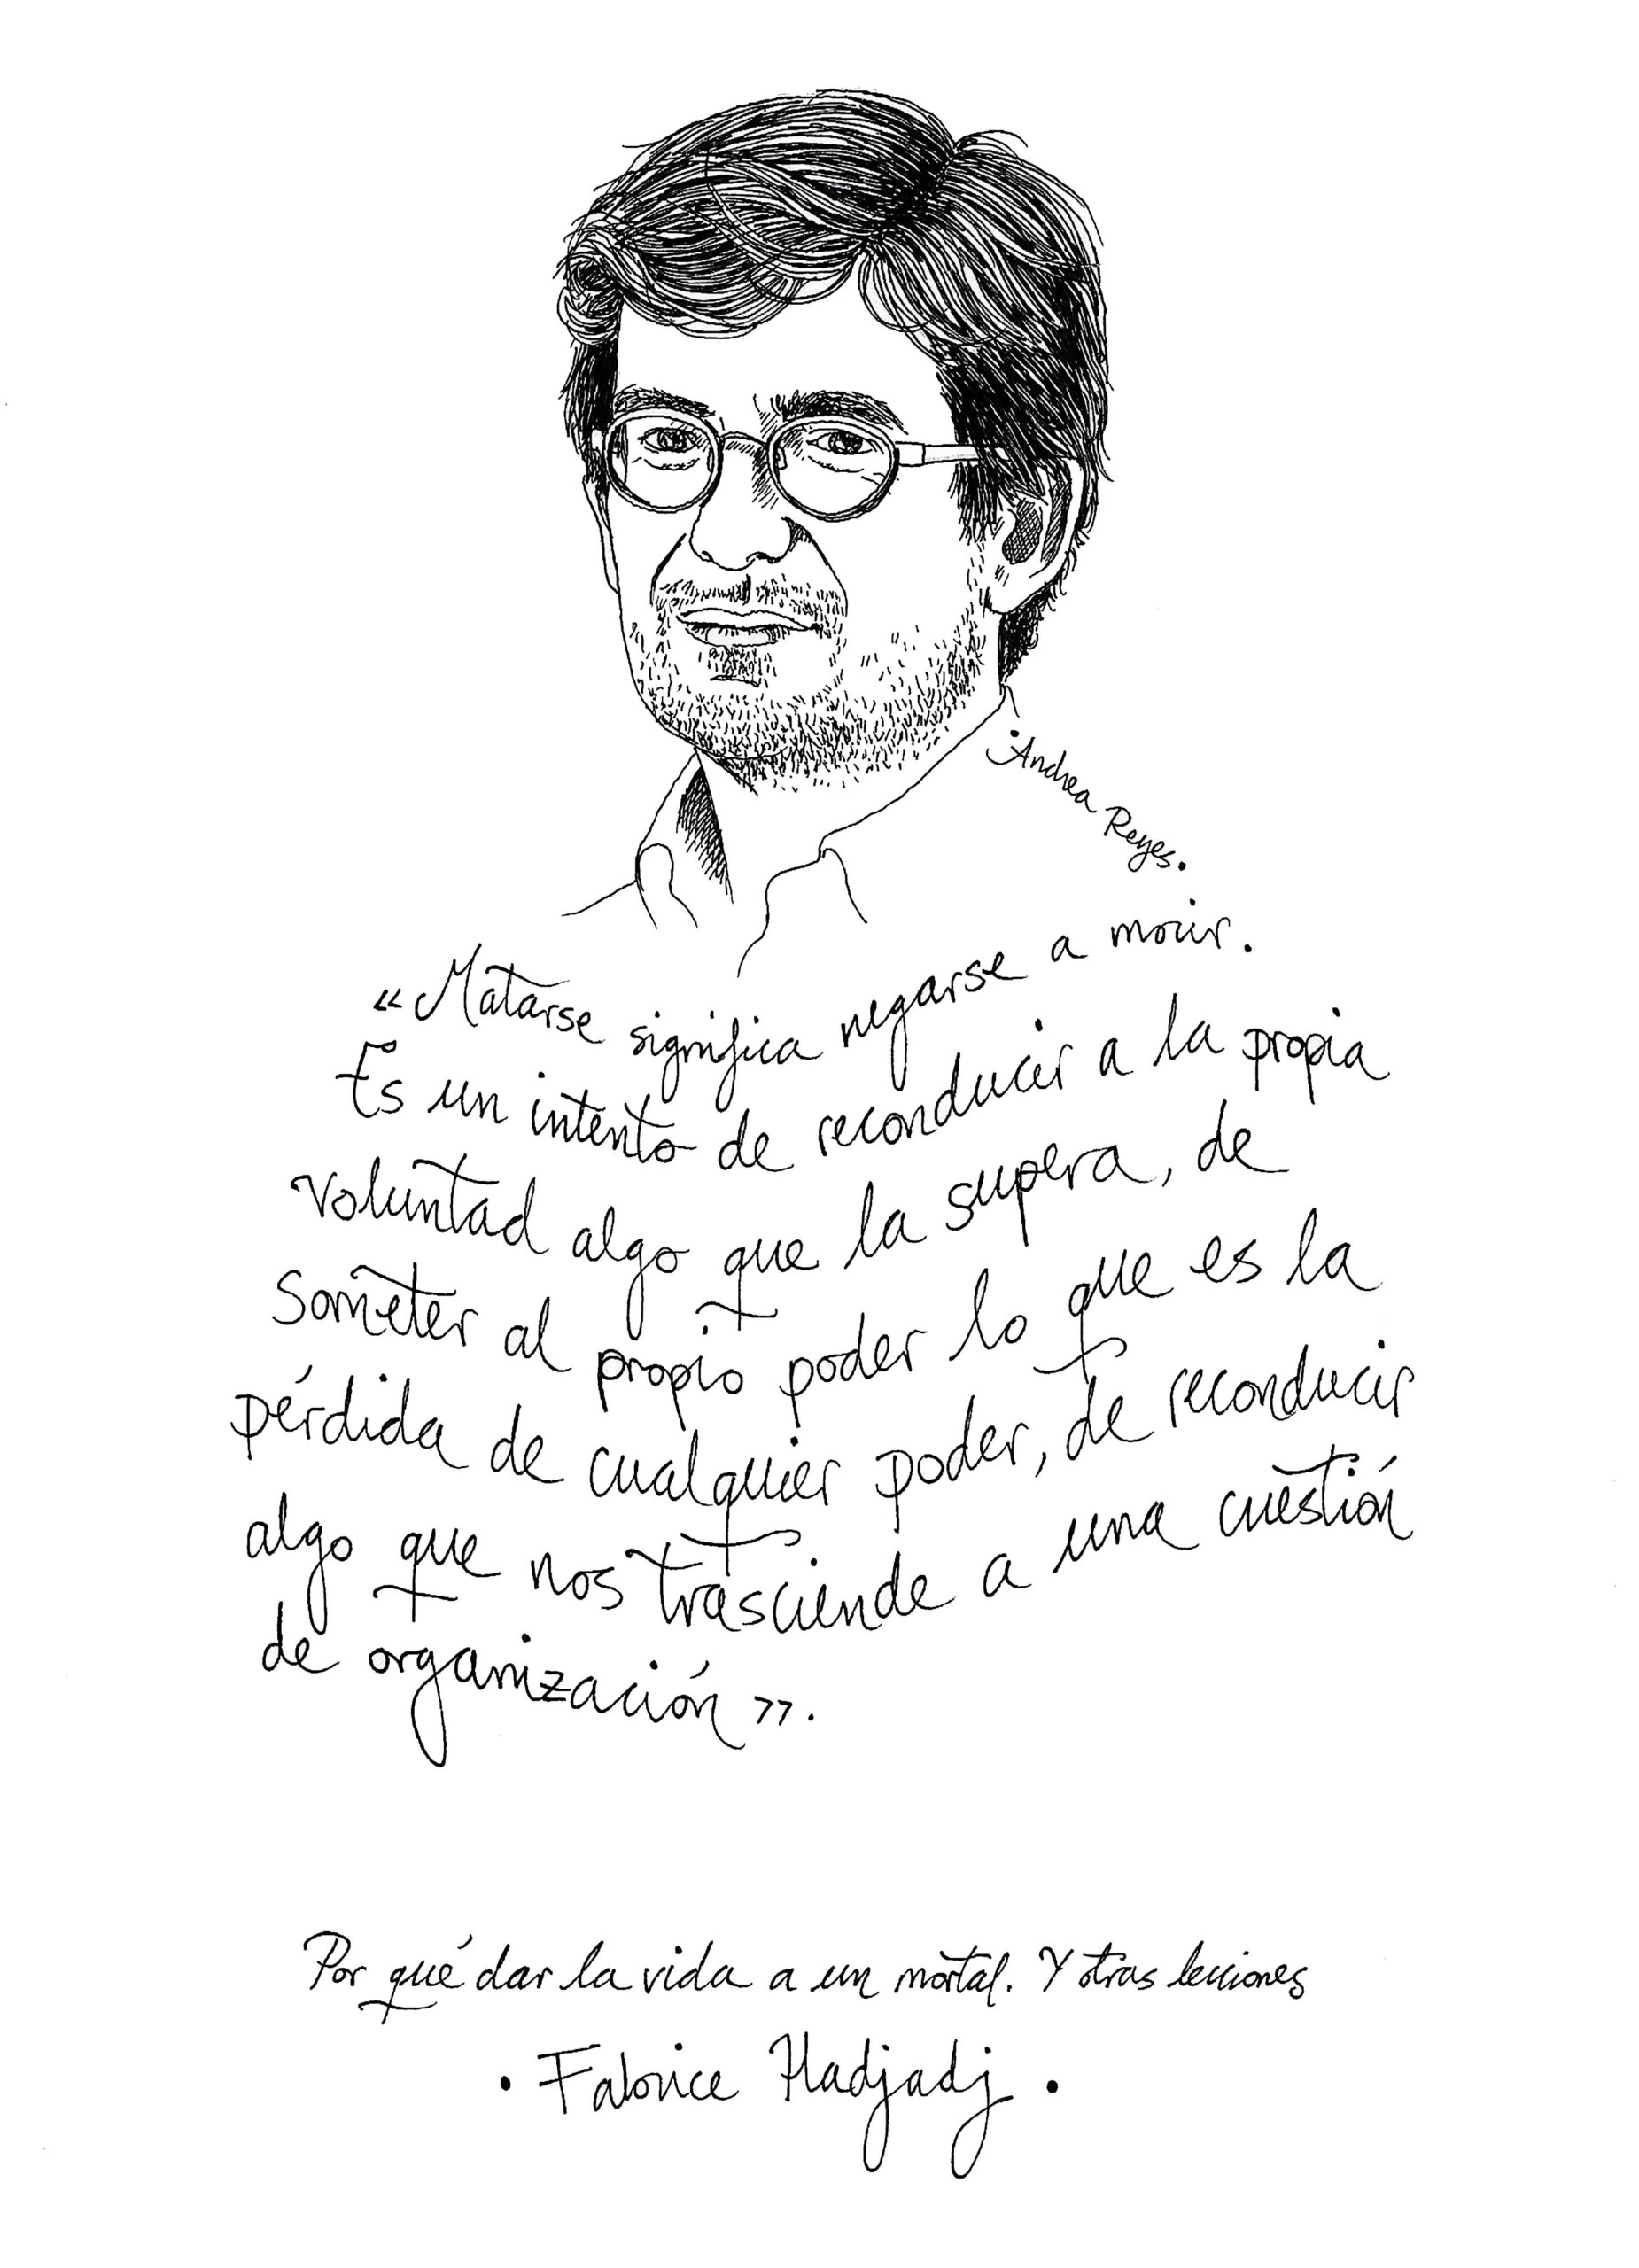 Andrea Reyes.
«Matarse significa negarse a morir.
Es un intento de reconducir a la propia
voluntad algo que la supera, de
someter al propio poder lo que es la
pérdida de cualquier poder, de reconducir
algo que nos trasciende a una cuestión
de organización».
Por qué dar la vida a un mortal. Y otras lecciones
· Fabrice Hadjadj ·